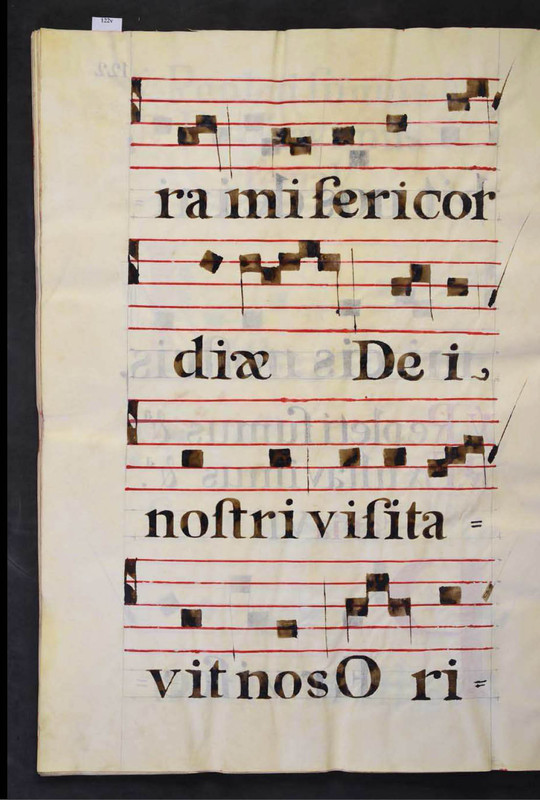 122v
ra mi ſericor
diæ De i
noſtri viſita =
vit nos O ri =